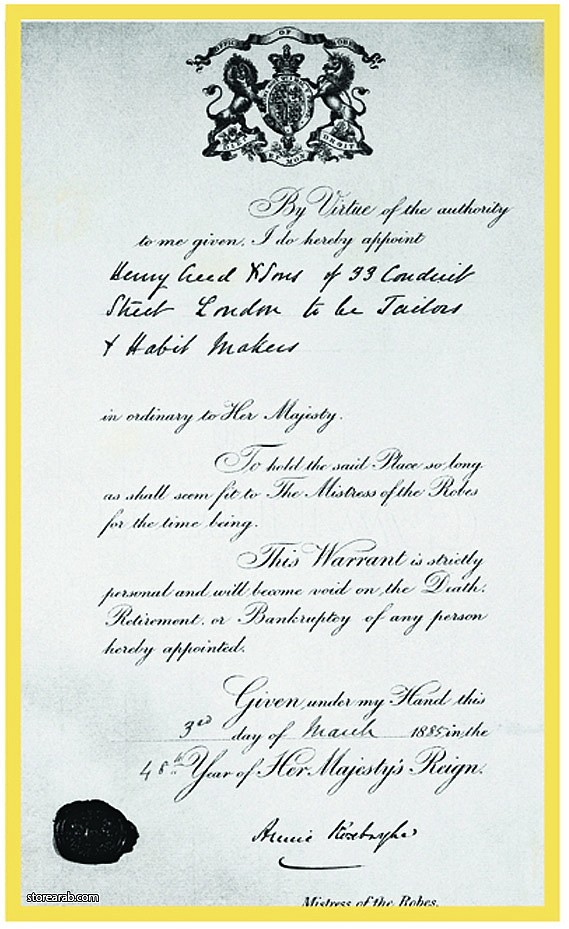 OFFICE OF ROBES
DIEU ET MON DROIT
By Virtue of the authority
to me given, I do hereby appoint
Henry Creed & Sons of 33 Conduit
Street London to be Tailors
& Habit Makers
in ordinary to Her Majesty.
To hold the said Place so long
as shall seem fit to The Mistress of the Robes
for the time being.
This Warrant is strictly
personal and will become void on the Death,
Retirement, or Bankruptcy of any person
hereby appointed.
Given under my Hand this
3rd day of March 1885 in the
48th Year of Her Majesty's Reign.
Annie Roxburghe
Mistress of the Robes.
storearab.com